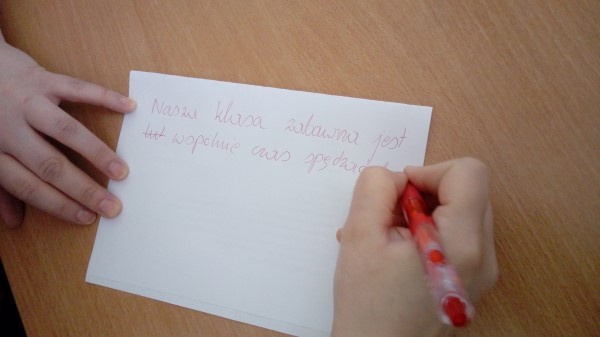 Nasza klasa zabawna jest
wspólnie czas spędzać